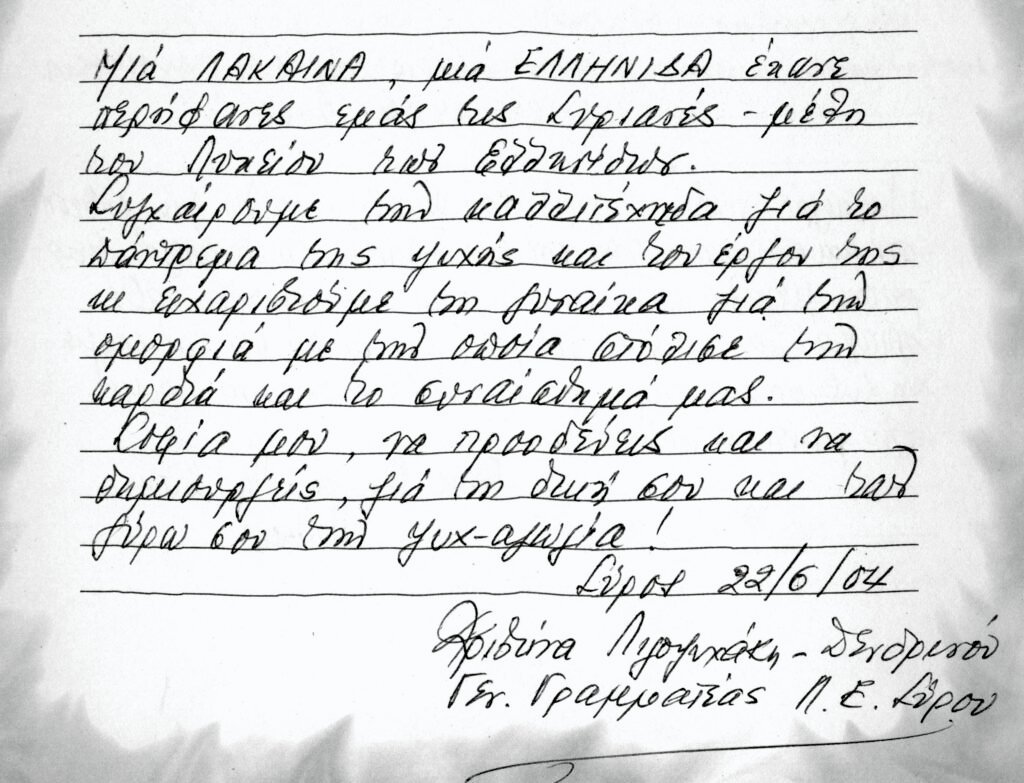 Μιά ΛΑΚΑΙΝΑ, μιά ΕΛΛΗΝΙΔΑ έκανε
περήφανες εμάς τις Συριανές - μέλη
του Λυκείου των Ελληνίδων.
Συγχαίρουμε την καλλιτέχνιδα γιά το
πάντρεμα της ψυχής και του έργου της
κι ευχαριστούμε τη γυναίκα γιά την
ομορφιά με την οποία στόλισε την
καρδιά και το συναίσθημά μας.
Σοφία μου, να προοδεύεις και να
δημιουργείς, γιά τη δική σου και των
γύρω σου την ψυχ-αγωγία!
Σύρος 22/6/04
Λιγοψυχάκη - Δενδρινού
Γεν. Γραμματέας Λ. Ε. Σύρου